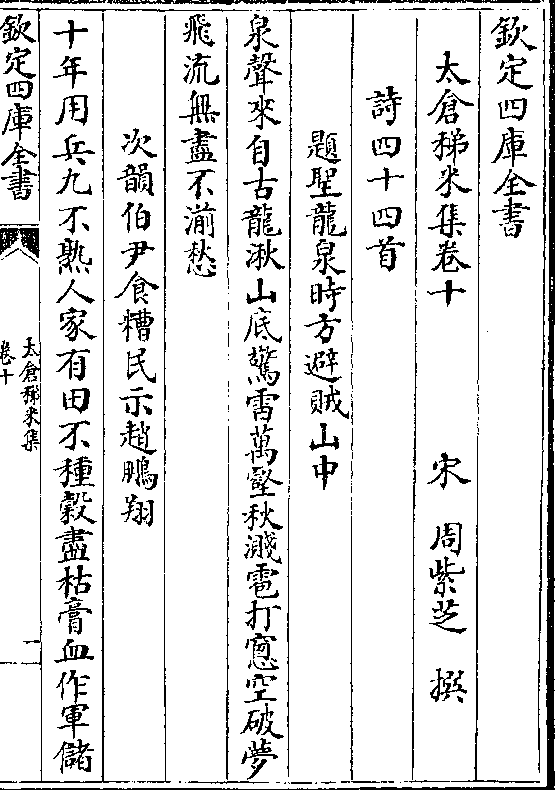 欽定四庫全書
太倉稊米集卷十
宋 周紫芝 撰
詩四十四首
題聖龍泉時方避賊山中
泉聲來自古龍湫山底驚雷萬壑秋濺雹打窻空破夢
飛流無盡不湔愁
次韻伯尹食糟民示趙鵬翔
十年用兵九不熟人家有田不種穀盡枯膏血作軍儲
欽定四庫全書
太倉稊米集
卷十
一